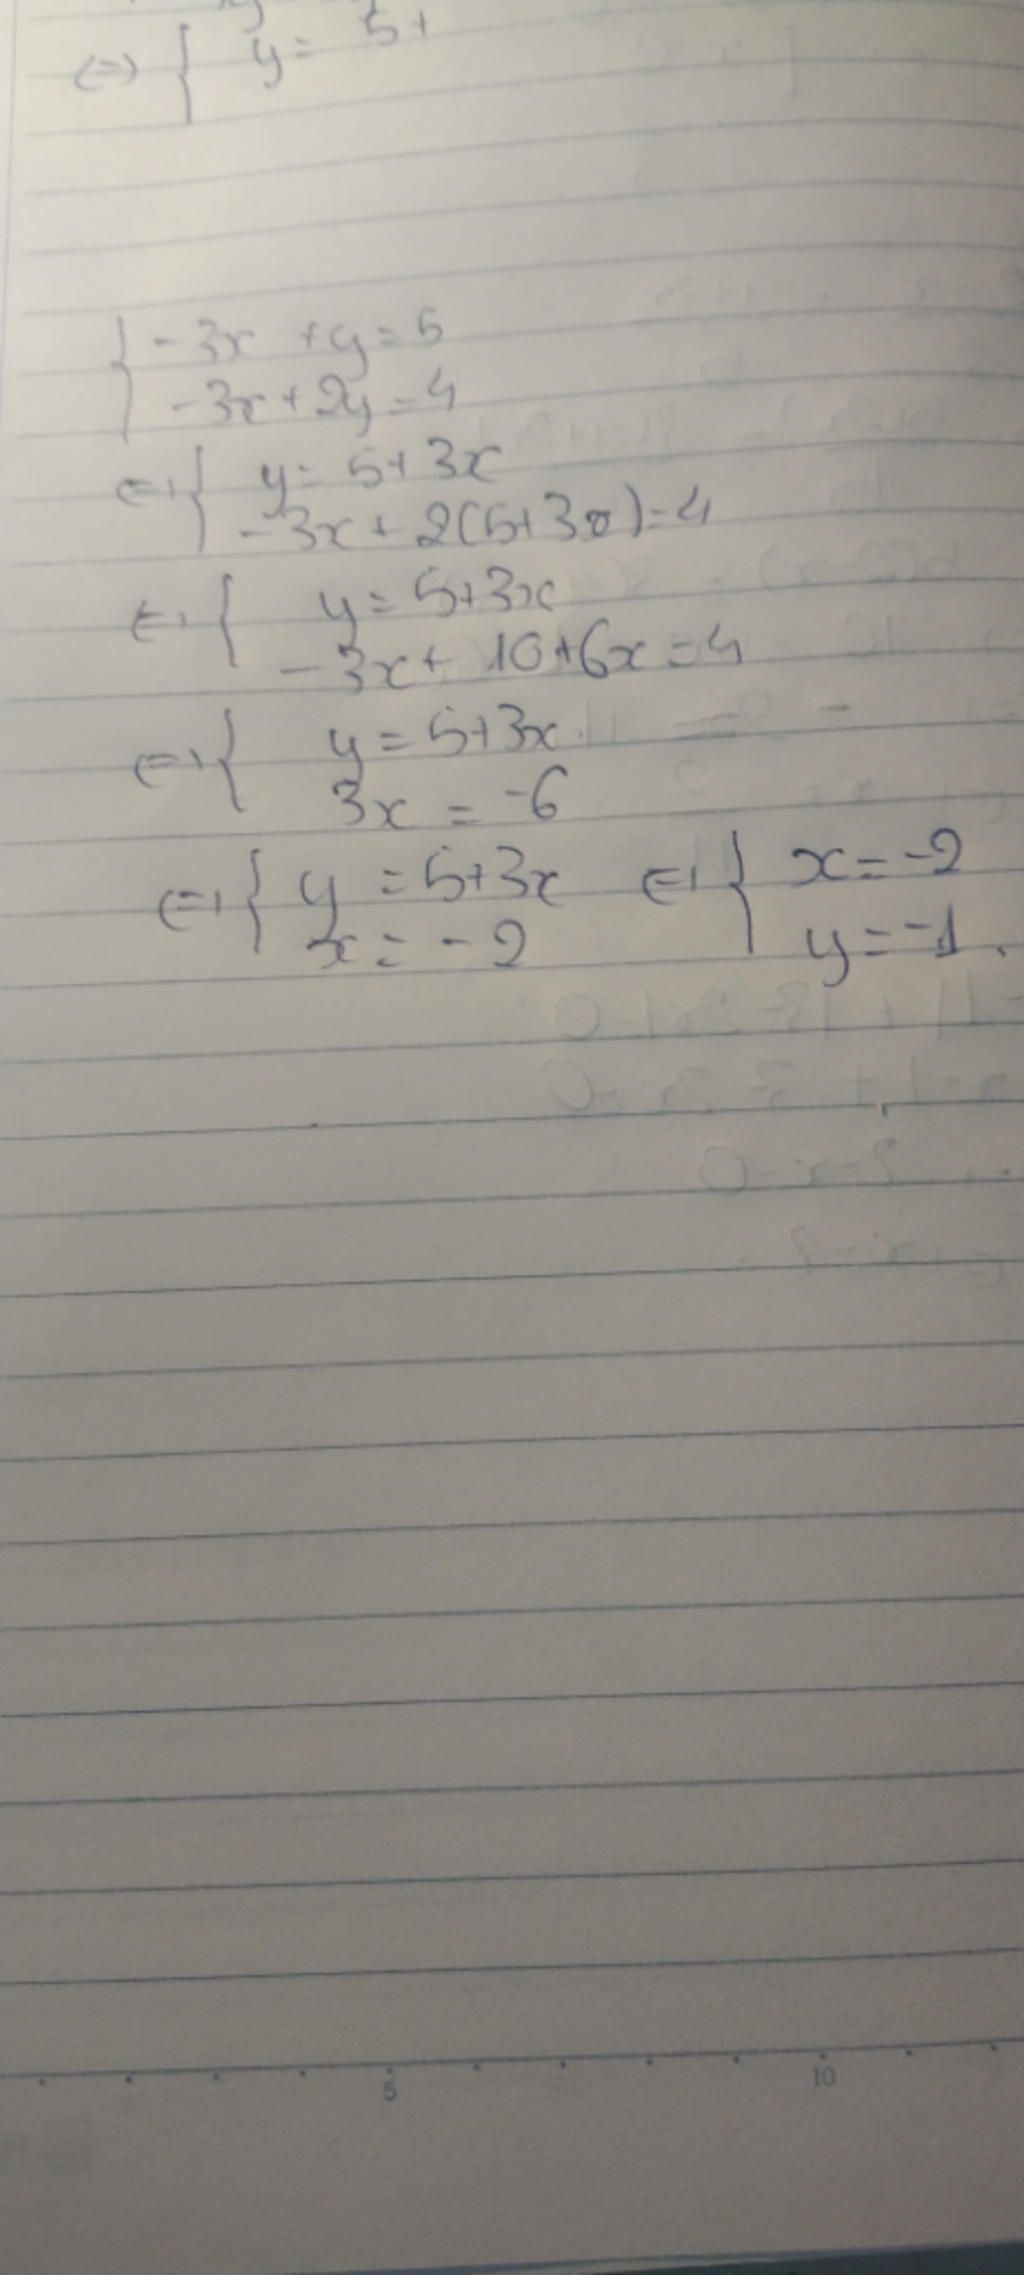 ⇔ { y = 5+
{ -3x + y = 5
-3x + 2y = 4
⇔ { y = 5+3x
-3x + 2(5+3x) = 4
⇔ { y = 5+3x
-3x + 10+6x = 4
⇔ { y = 5+3x
3x = -6
⇔ { y = 5+3x ⇔ { x = -2
x = -2 y = -1.
5 10